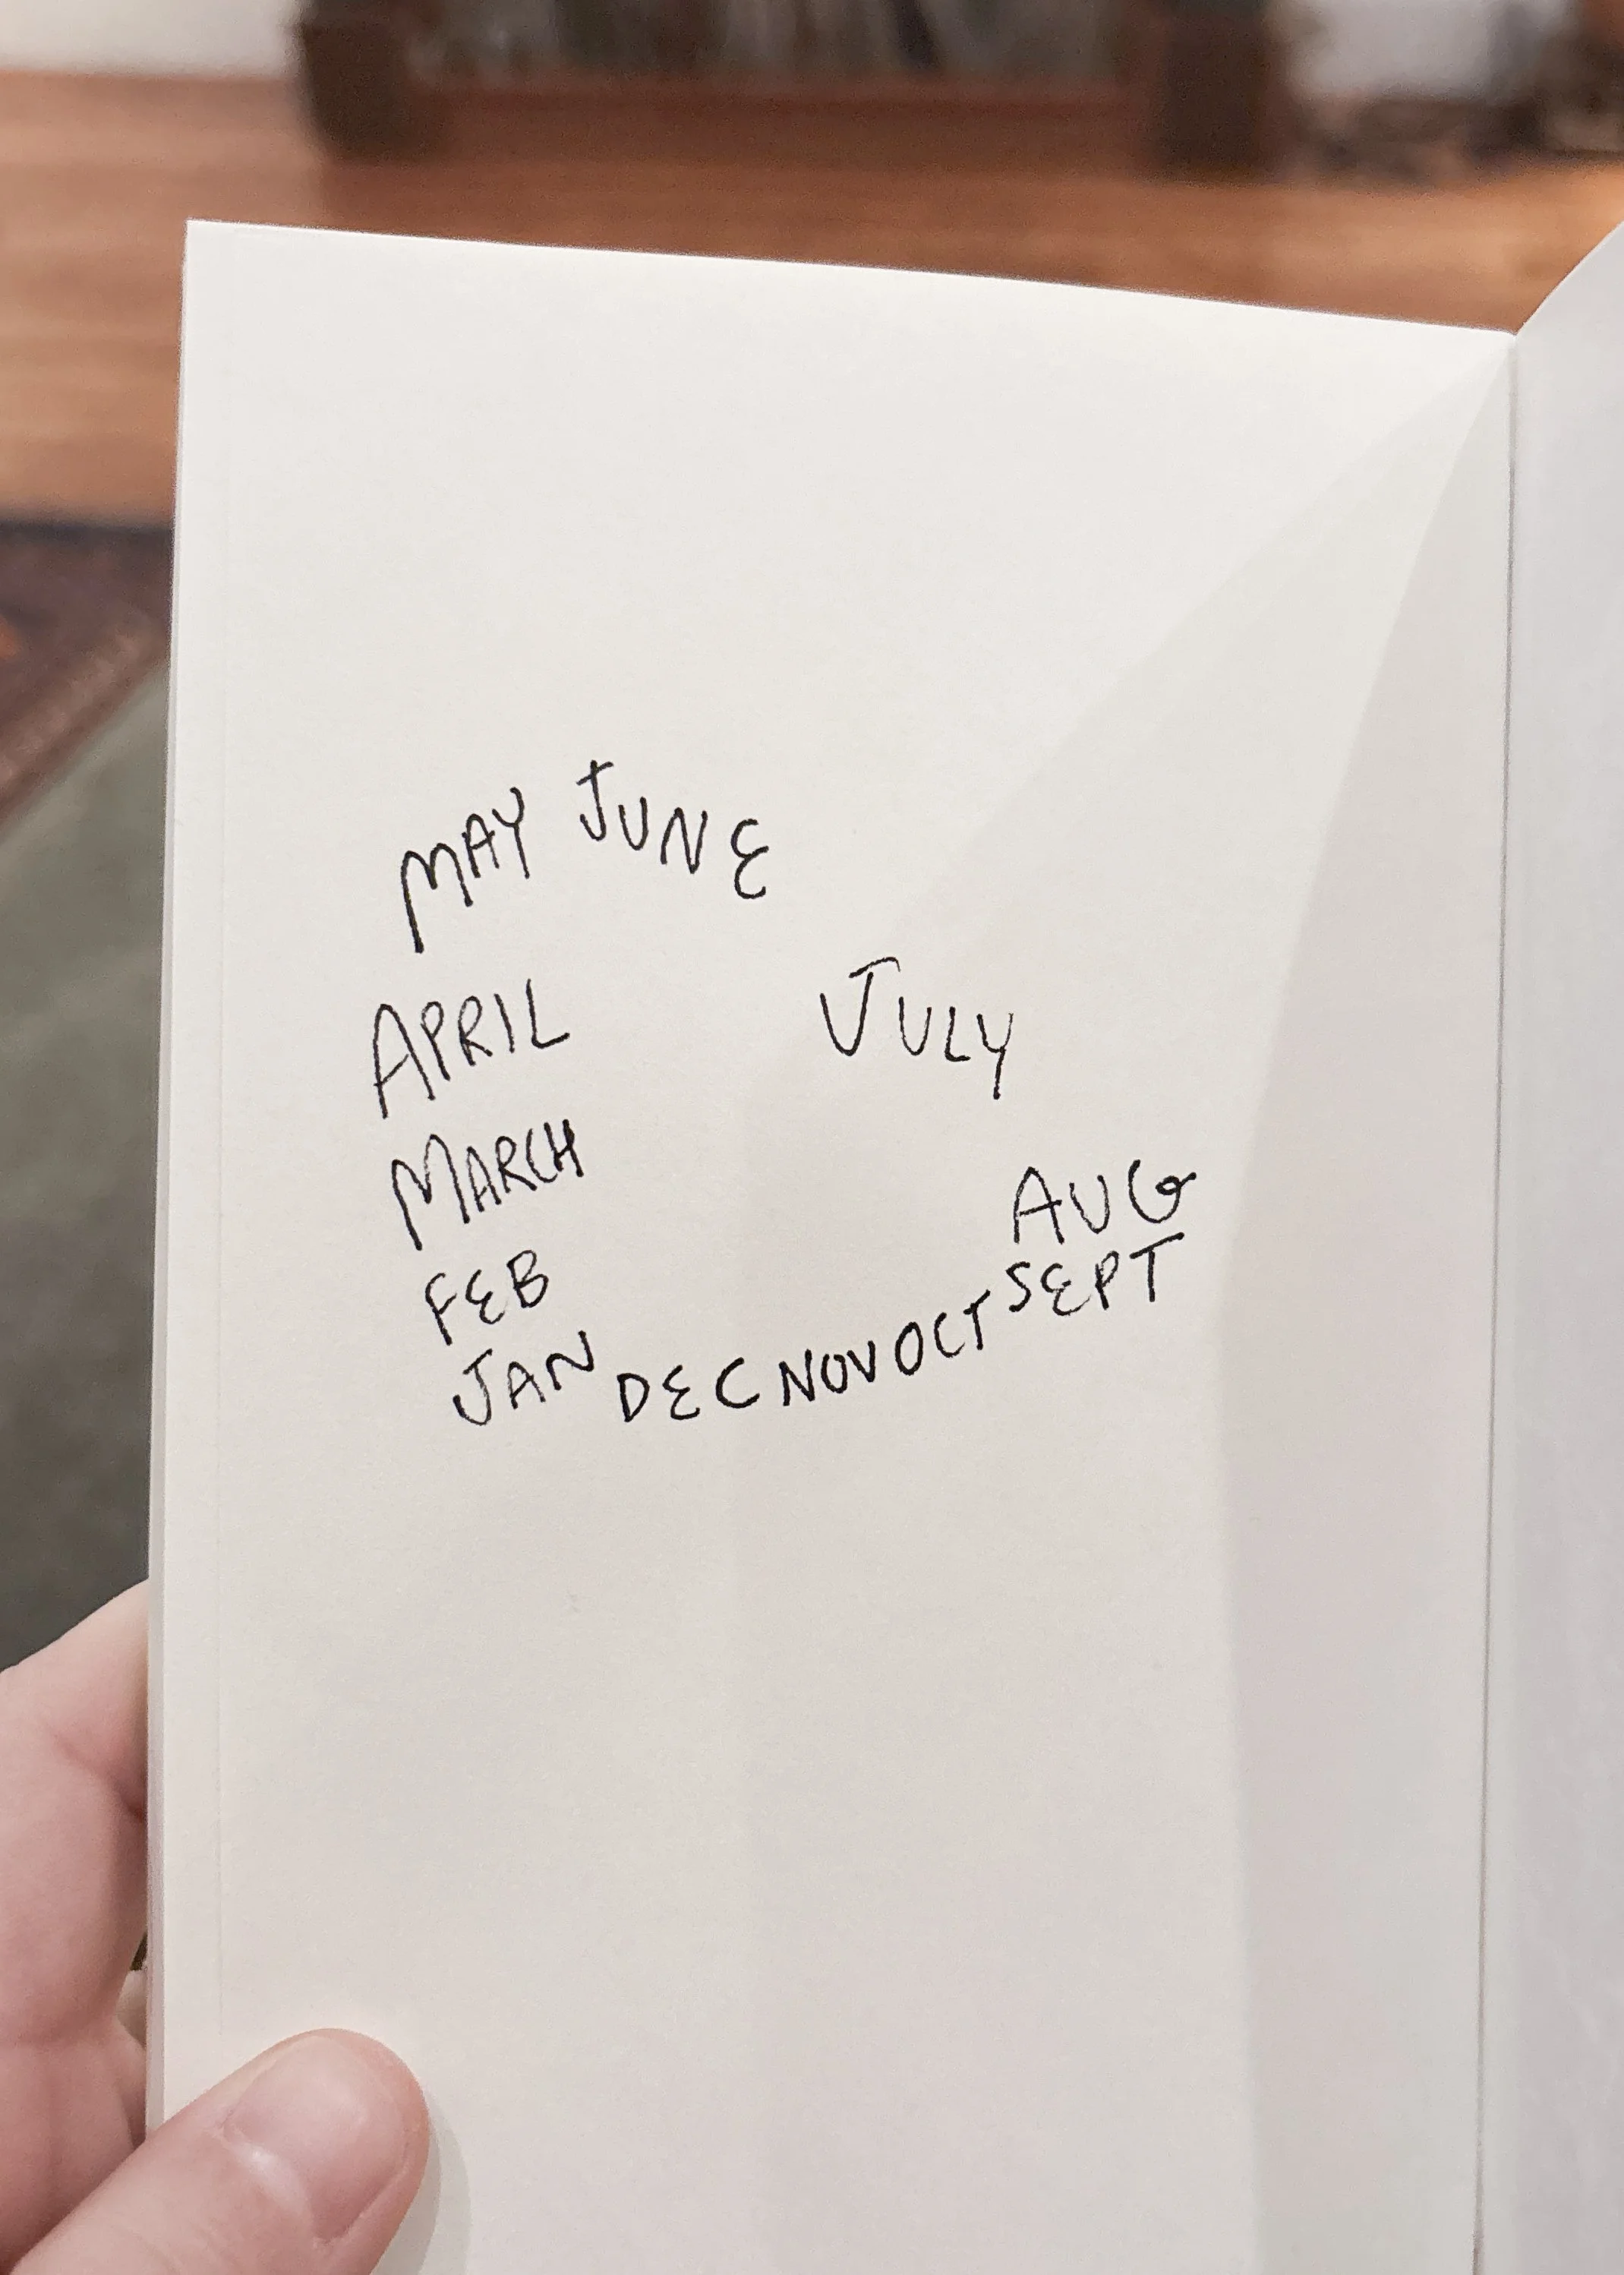 MAY JUNE
APRIL
JULY
MARCH
AUG
FEB
SEPT
JAN DEC NOV OCT